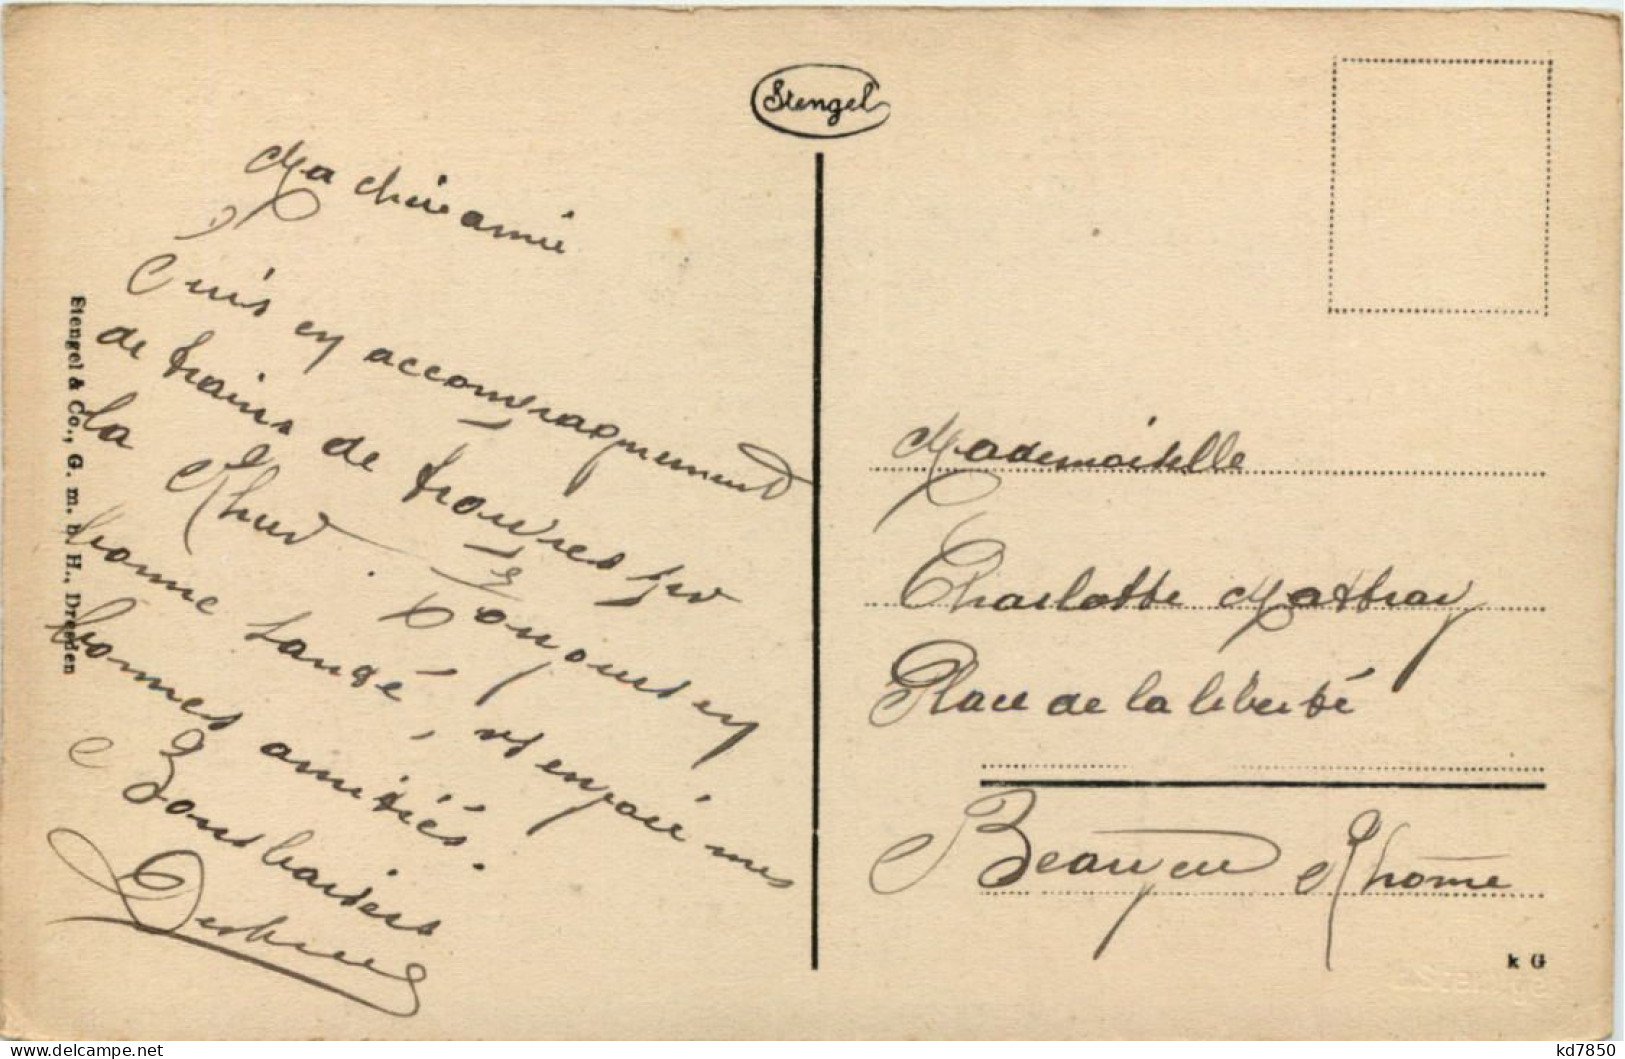 Stengel
Ma chère amie
Suis en accompagnement
de trains de troupes sur
la Rhur. Toujours en
bonne santé, et envoie mes
bonnes amitiés.
Bons baisers
Stengel & Co., G. m. b. H., Dresden
Mademoiselle
Charlotte Mathray
Place de la liberté
Beaujeu Rhône
k G
kd7850